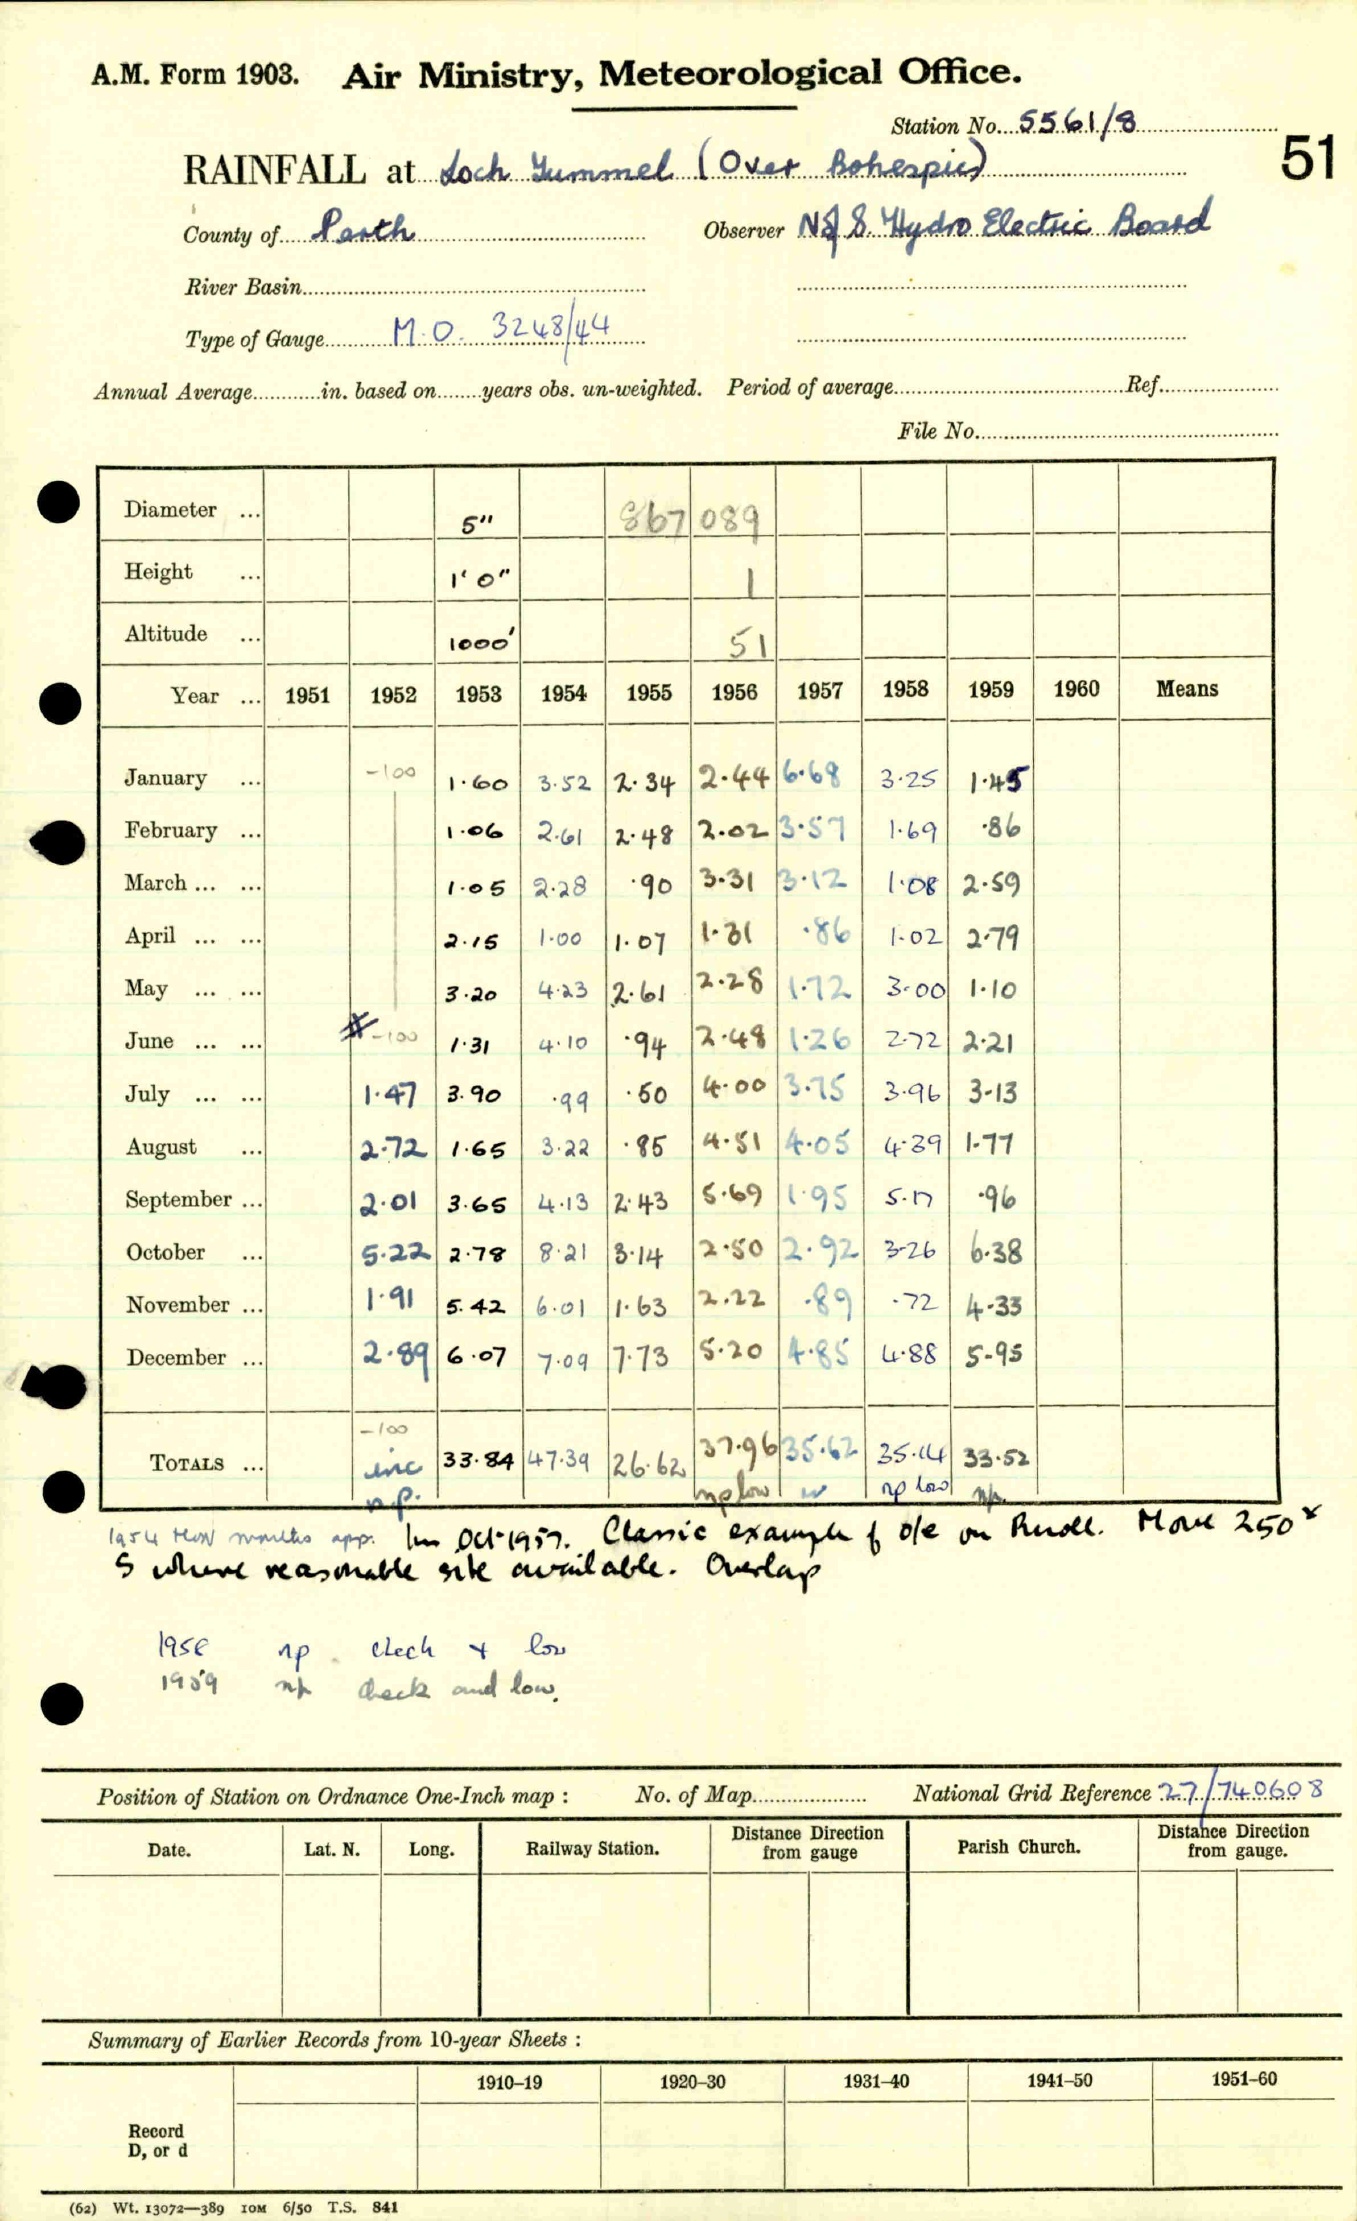 A.M. Form 1903. Air Ministry, Meteorological Office.
Station No. 5561/8
51
RAINFALL at Loch Tummel (Over Bohespic)
County of Perth Observer N of S Hydro Electric Board
River Basin
Type of Gauge M.O. 3248/44
Annual Average in. based on years obs. un-weighted. Period of average Ref.
File No.
Diameter ... 5" 867 089
Height ... 1' 0" 1
Altitude ... 1000' 51
Year ... 1951 1952 1953 1954 1955 1956 1957 1958 1959 1960 Means
January ... -100 1.60 3.52 2.34 2.44 6.68 3.25 1.45
February ... 1.06 2.61 2.48 2.02 3.57 1.69 .86
March ... ... 1.05 2.28 .90 3.31 3.12 1.08 2.59
April ... ... 2.15 1.00 1.07 1.31 .86 1.02 2.79
May ... ... 3.20 4.23 2.61 2.28 1.72 3.00 1.10
June ... ... -100 1.31 4.10 .94 2.48 1.26 2.72 2.21
July ... ... 1.47 3.90 .99 .50 4.00 3.75 3.96 3.13
August ... 2.72 1.65 3.22 .85 4.51 4.05 4.39 1.77
September ... 2.01 3.65 4.13 2.43 5.69 1.95 5.17 .96
October ... 5.22 2.78 8.21 3.14 2.50 2.92 3.26 6.38
November ... 1.91 5.42 6.01 1.63 2.22 .89 .72 4.33
December ... 2.89 6.07 7.09 7.73 5.20 4.85 4.88 5.95
-100
TOTALS ... inc 33.84 47.39 26.62 37.96 35.62 35.14 33.52
n.p. np low np low np.
1954 months app. Oct 1957. Classic example of o/e on Knoll. Move 250x
S where reasonable site available. Overlap
1958 np check + low
1959 np check and low.
Position of Station on Ordnance One-Inch map : No. of Map National Grid Reference 27/740608
Date. Lat. N. Long. Railway Station. Distance Direction from gauge Parish Church. Distance Direction from gauge.
Summary of Earlier Records from 10-year Sheets :
1910–19 1920–30 1931–40 1941–50 1951–60
Record
D, or d
(62) Wt. 13072—389 10M 6/50 T.S. 841